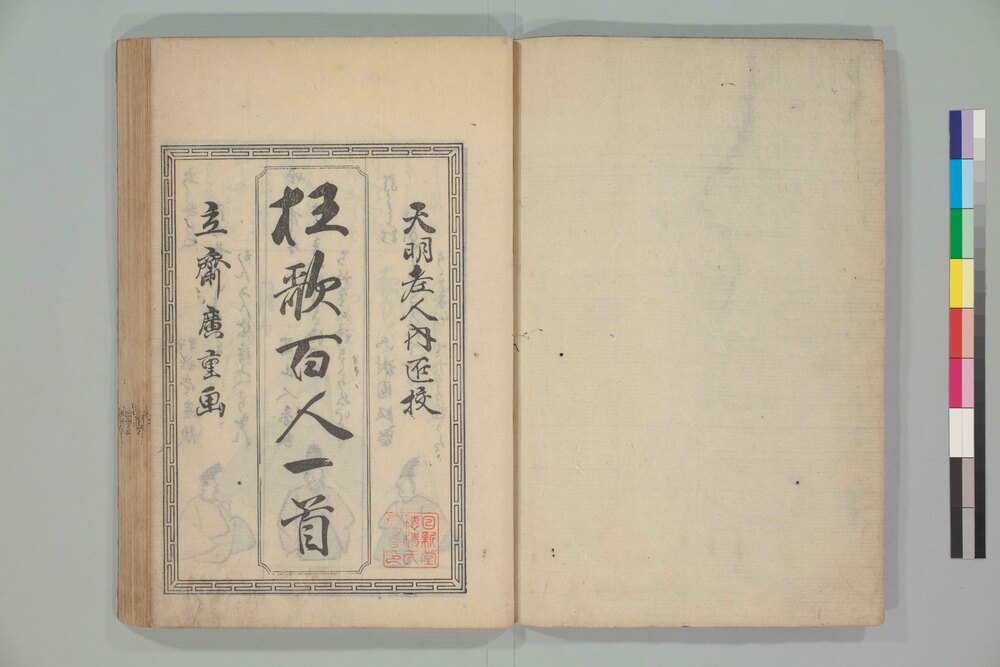 天明老人内匠校
狂歌百人一首
立齋廣重画
日新堂